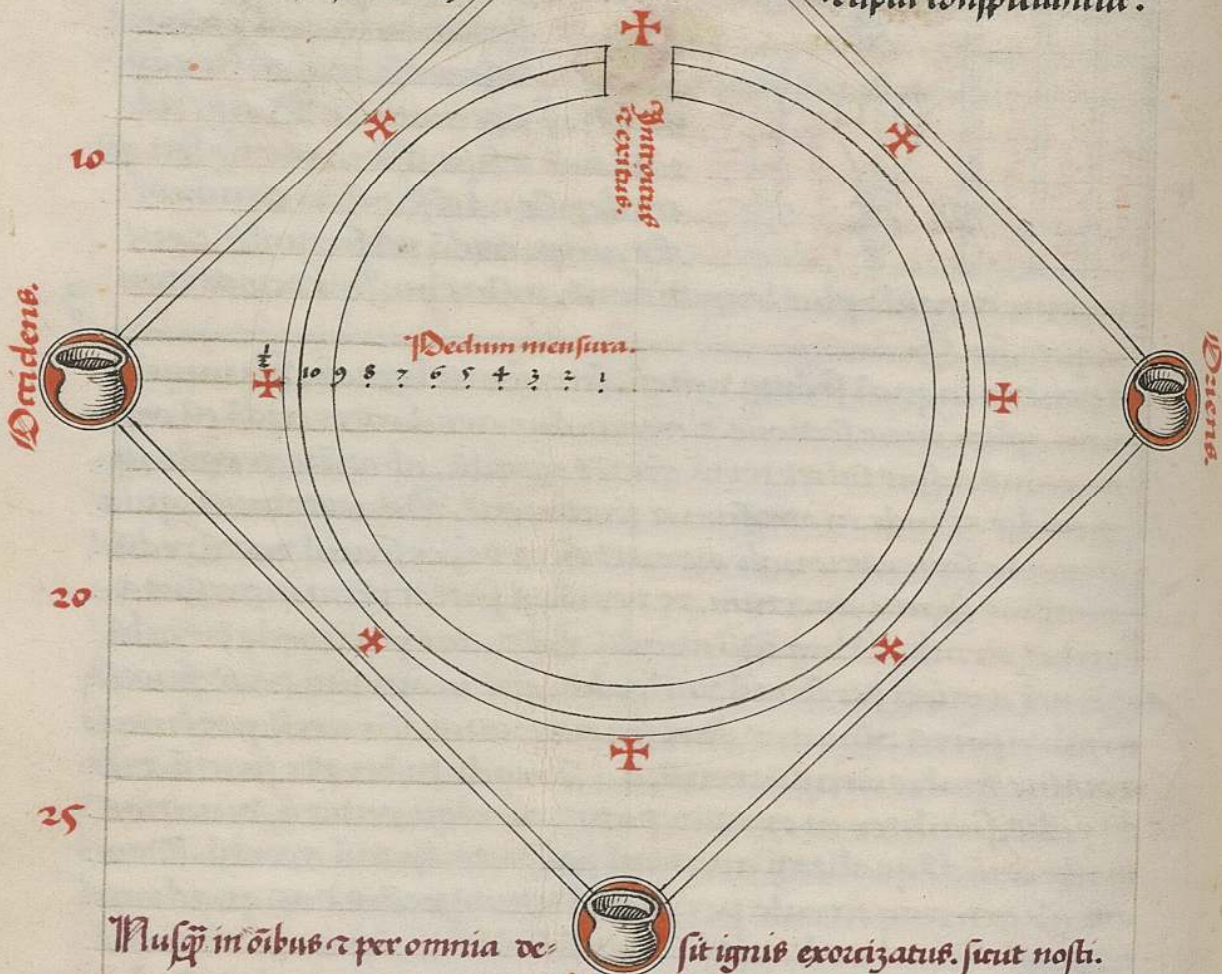 10
Introitus
& exitus.
Occidens.
Oriens.
Pedum mensura.
½
10 9 8 7 6 5 4 3 2 1
20
25
Nusq̄ in oībus ⁊ per omnia de= sit ignis exorcizatus. sicut nosti.